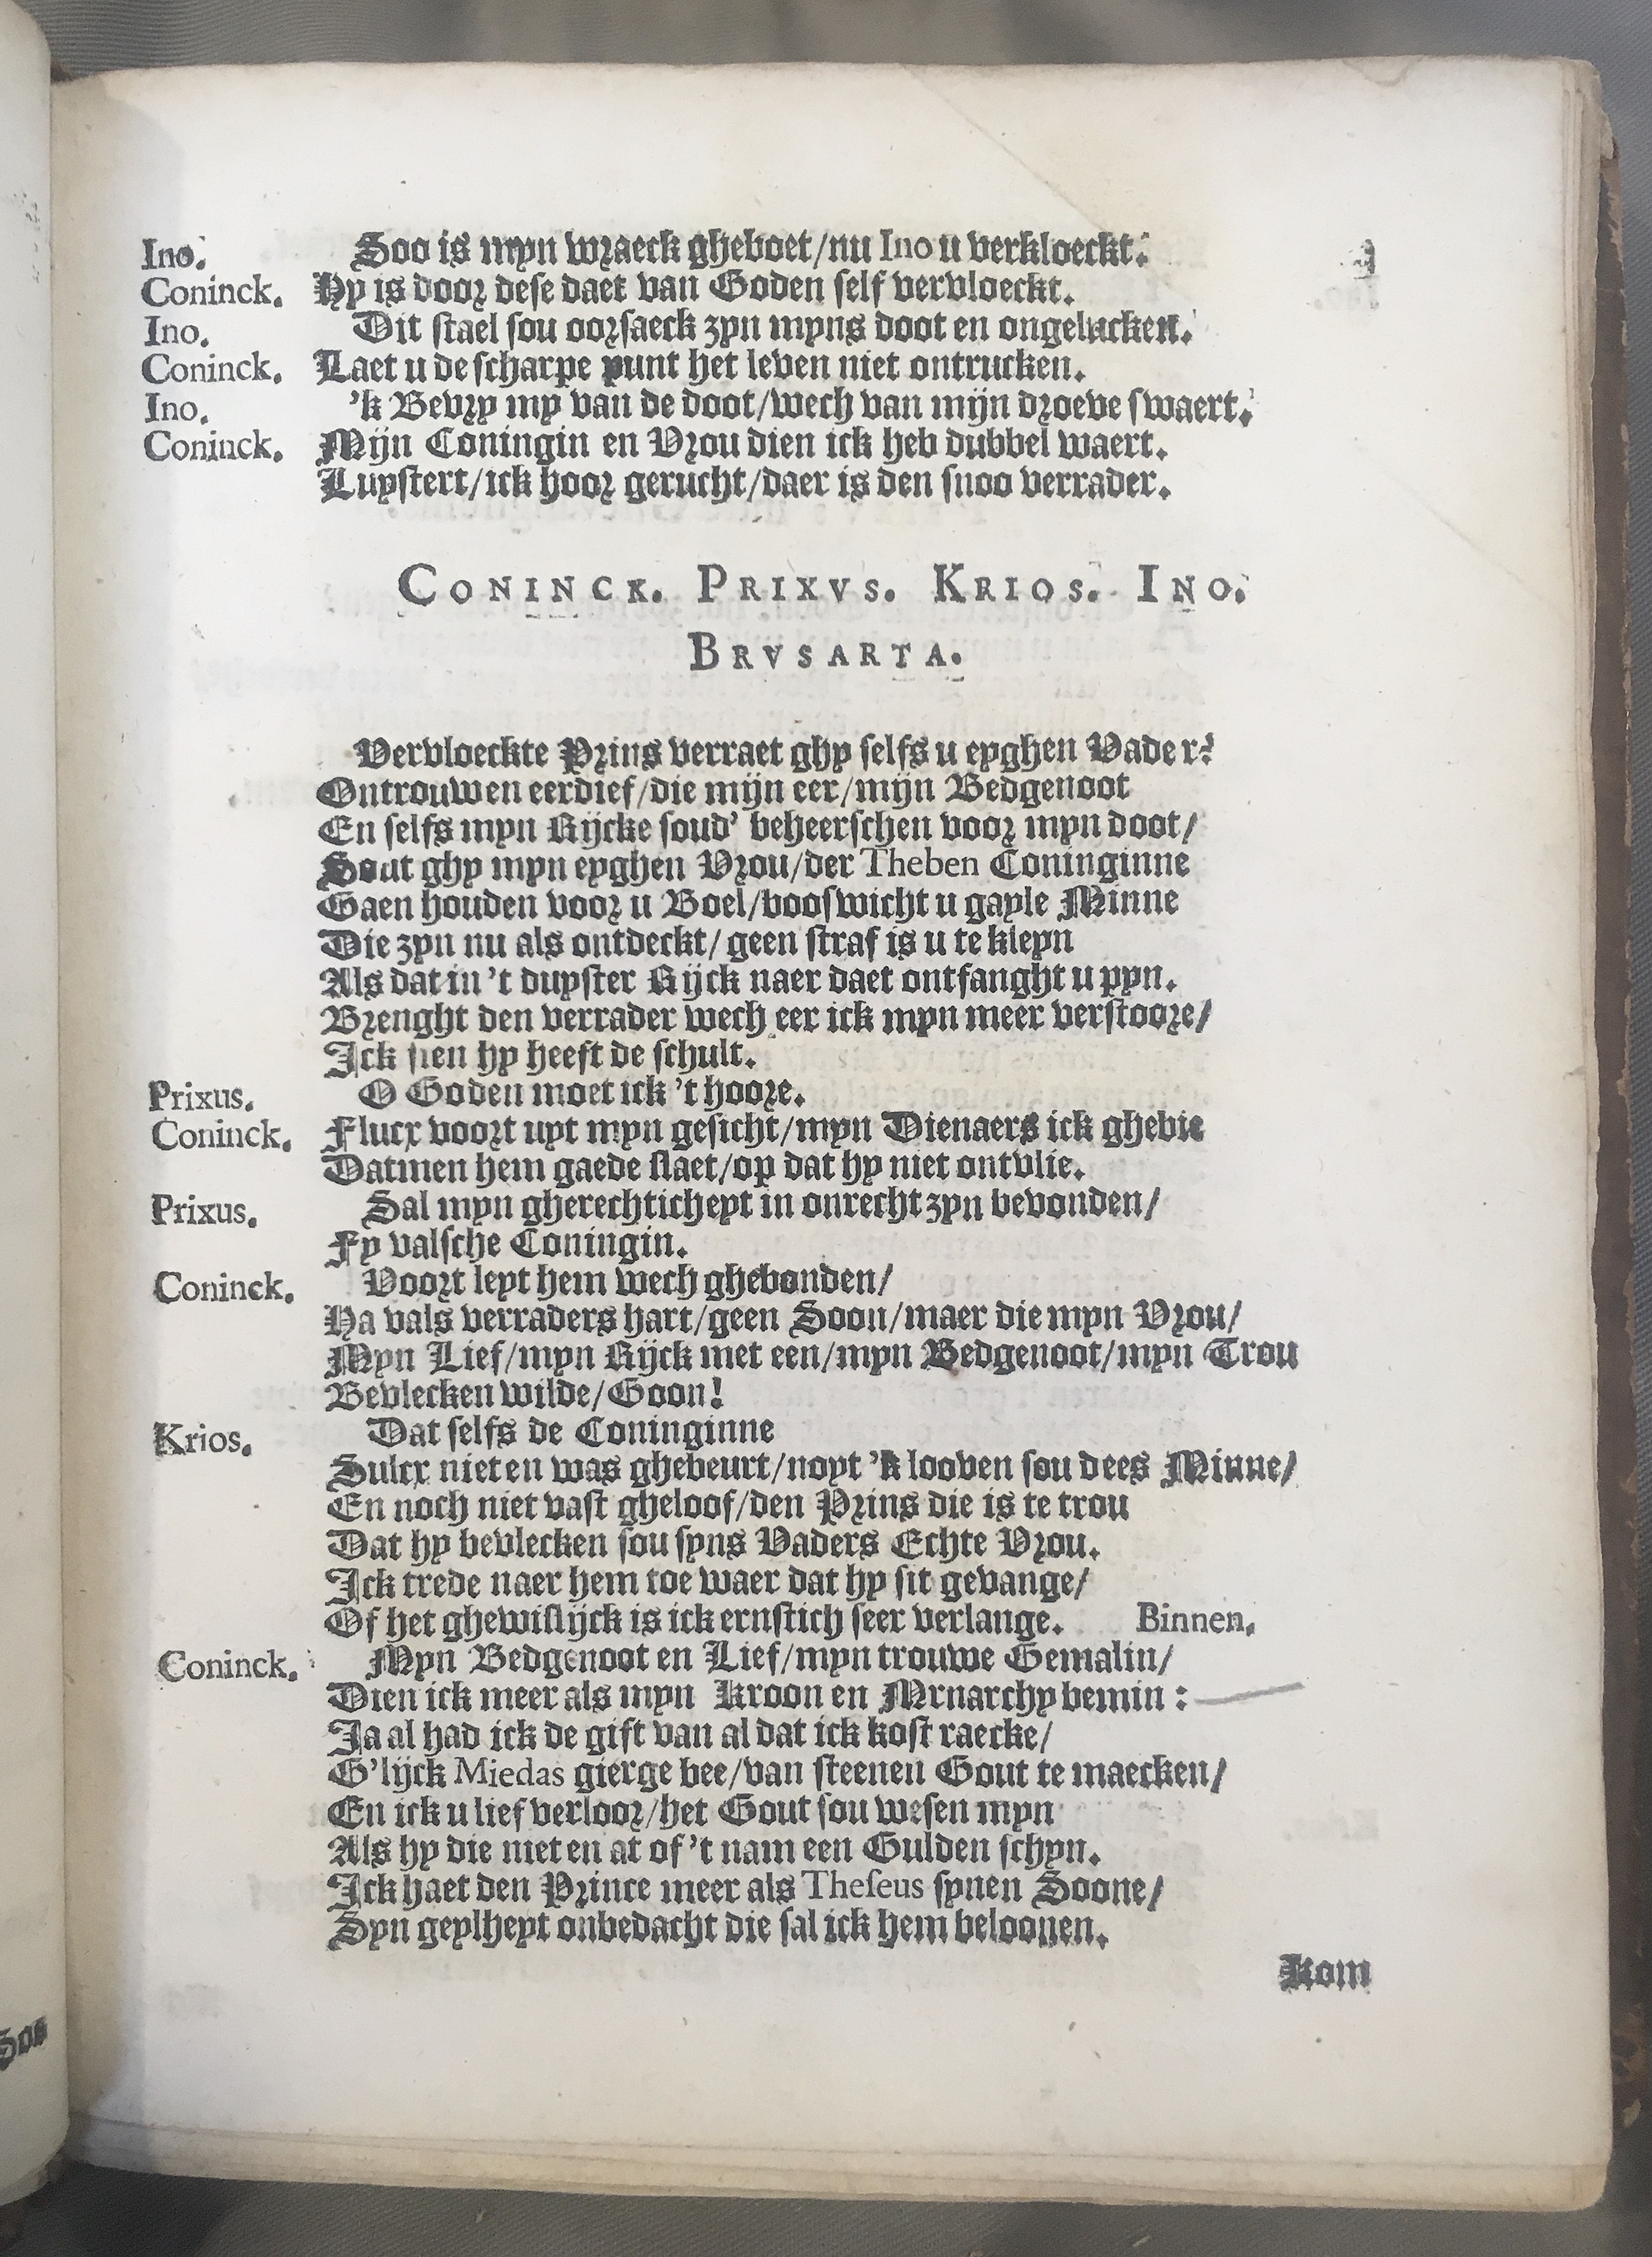 Ino. Soo is mpn wraeck gheboet/nu Ino u verkloeckt.
Coninck. Hy is door dese daet van Goden self vervloeckt.
Ino. Dit stael sou oorsaeck zyn myns doot en ongelucken.
Coninck. Laet u de scharpe punt het leven niet ontrucken.
Ino. 'k Bevry my van de doot/wech van mijn droeve swaert.
Coninck. Mijn Coningin en Vrou dien ick heb dubbel waert.
Luystert/ick hoor gerucht/daer is den snoo verrader.
CONINCK. PRIXVS. KRIOS. INO.
BRVSARTA.
Vervloeckte Prins verraet ghy selfs u eyghen Vader?
Ontrouwen eerdief/die mijn eer/mijn Bedgenoot
En selfs myn Rijcke soud' beheerschen voor myn doot/
Sout ghy myn eyghen Vrou/der Theben Coninginne
Gaen houden voor u Boel/booswicht u gayle Minne
Die zyn nu als ontdeckt/geen straf is u te kleyn
Als dat in 't duyster Rijck naer daet ontfanght u pyn.
Brenght den verrader wech eer ick myn meer verstoore/
Ick sien hy heeft de schult.
Prixus. O Goden moet ick 't hoore.
Coninck. Flucx voort uyt myn gesicht/myn Dienaers ick ghebie
Datmen hem gaede slaet/op dat hy niet ontvlie.
Prixus. Sal myn gherechticheyt in onrecht zyn bevonden/
Fy valsche Coningin.
Coninck. Voort leyt hem wech ghebonden/
Ha vals verraders hart/geen Soon/maer die myn Vrou/
Myn Lief/myn Rijck met een/myn Bedgenoot/myn Trou
Bevlecken wilde/Goon!
Krios. Dat selfs de Coninginne
Sulcx niet en was ghebeurt/noyt 'k looven sou dees Minne/
En noch niet vast gheloof/den Prins die is te trou
Dat hy bevlecken sou syns Vaders Echte Vrou.
Ick trede naer hem toe waer dat hy sit gevange/
Of het ghewislijck is ick ernstich seer verlange. Binnen.
Coninck. Myn Bedgenoot en Lief/myn trouwe Gemalin/
Dien ick meer als myn Kroon en Mrnarchy bemin:
Ja al had ick de gift van al dat ick kost raecke/
G'lijck Miedas gierge bee/van steenen Gout te maecken/
En ick u lief verloor/het Gout sou wesen myn
Als hy die niet en at of 't nam een Gulden schyn.
Ick haet den Prince meer als Theseus synen Soone/
Syn geylheyt onbedacht die sal ick hem beloonen.
Kom
Soo